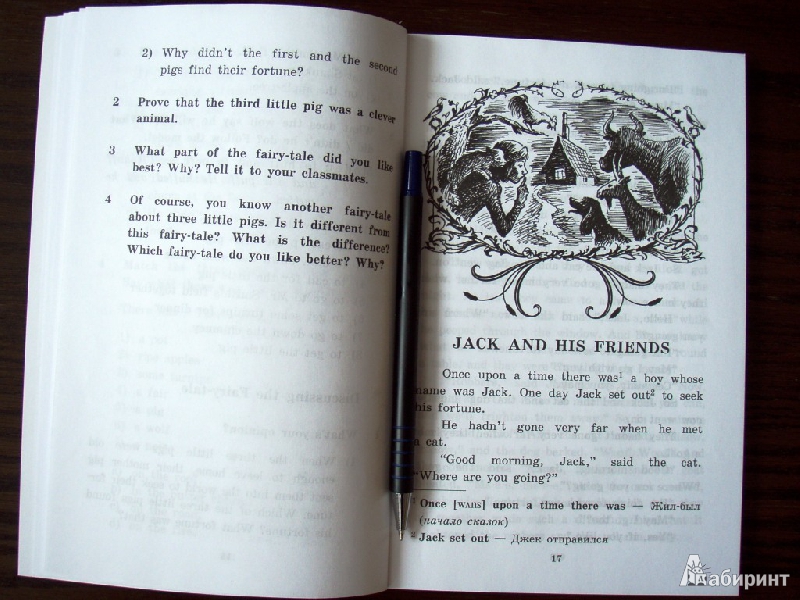 2) Why didn't the first and the second
pigs find their fortune?
2 Prove that the third little pig was a clever
animal.
3 What part of the fairy-tale did you like
best? Why? Tell it to your classmates.
4 Of course, you know another fairy-tale
about three little pigs. Is it different from
this fairy-tale? What is the difference?
Which fairy-tale do you like better? Why?
JACK AND HIS FRIENDS
Once upon a time there was¹ a boy whose
name was Jack. One day Jack set out² to seek
his fortune.
He hadn't gone very far when he met
a cat.
"Good morning, Jack," said the cat.
"Where are you going?"
Once [wʌns] upon a time there was — Жил-был
(начало сказок)
² Jack set out — Джек отправился
17
Лабиринт